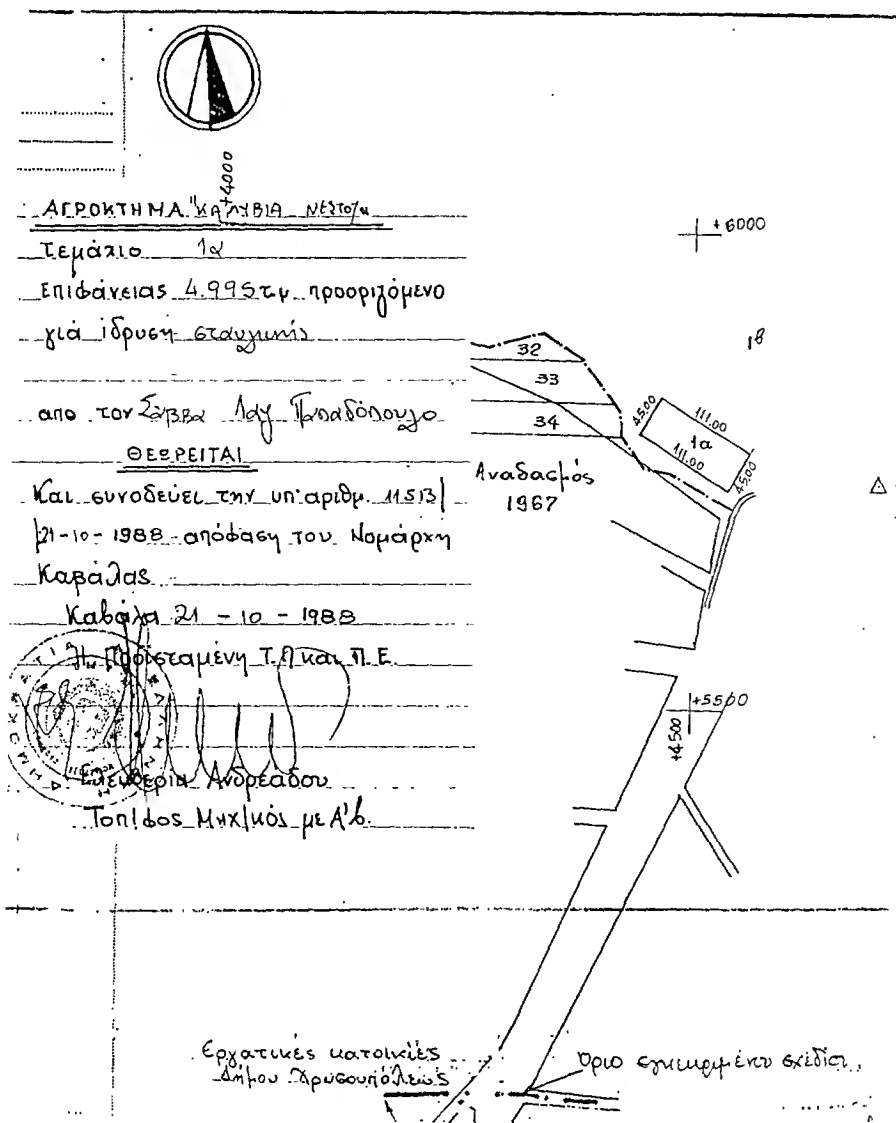 +4000
ΑΓΡΟΚΤΗΜΑ "ΚΑΛΥΒΙΑ
Τεμάχιο 1α
Επιφάνειας 4.995 τ.μ. προοριζόμενο
γιά ίδρυση σταυλικής
απο τον Σάββα Λαζ Παπαδόπουλο
ΘΕΩΡΕΙΤΑΙ
Και συνοδεύει την υπ' αριθμ. 11513/
21-10-1988 απόφαση του Νομάρχη
Καβάλας
Καβάλα 21-10-1988
Η Προϊσταμένη Τ.Π και Π.Ε.
Ελευθερία Ανδρεάδου
Τοπ/φος Μηχ/κός με Α'β.
+6000
1β
32
33
34
45.00
111.00
1α
111.00
45.00
Αναδασμός
1967
+5500
+4500
Εργατικές κατοικίες
Δήμου Χρυσουπόλεως
Όριο εγκεκριμένου σχεδίου